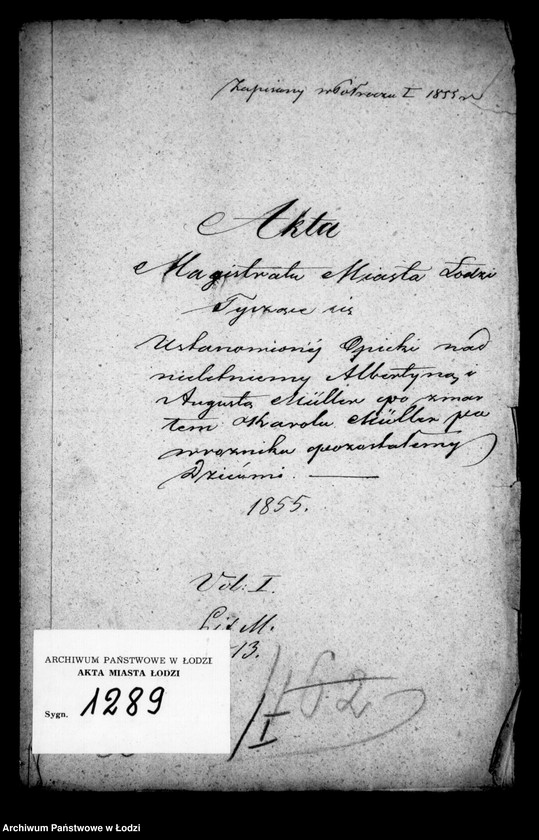 Zapisany w Półroczu I 1855 r
Akta
Magistratu Miasta Łodzi
Tyczące się
Ustanowionéj Opieki nad
nieletniemy Albertyną i
Augustą Müller po zmar
tem Karolu Müller po
wroźnika pozostałemy
Dziećmi. —
1855.
Vol: I.
Lit M.
13.
162
I
ARCHIWUM PAŃSTWOWE W ŁODZI
AKTA MIASTA ŁODZI
Sygn. 1289
Archiwum Państwowe w Łodzi